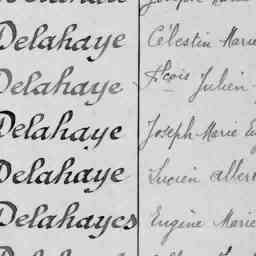 Delahaye Célestin Marie
Delahaye Fçois Julien
Delahaye Joseph Marie
Delahaye Lucien
Delahayes Eugène Marie